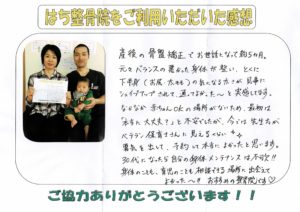 はち整骨院をご利用いただいた感想
産後の骨盤矯正でお世話になって約5ヵ月。
元々バランスの悪かった身体が整い、とくに
下半身(お尻・太もも)の気になる太さが見事に
シェイプアップされて、通ってよかった〜と実感してます。
なかなか赤ちゃんOKの場所がないため、最初は
「本当に大丈夫?」と不安でしたが、今では先生方が
ベテラン保育士さんに見えるくらい
勇気を出して、予約して本当によかったと思います。
30代になったら自分の身体のメンテナンスは不可欠!!
身体のことも、育児のことも相談できる場所に出会えて
よかった〜!! おすすめの整骨院です♡
ご協力ありがとうございます!!